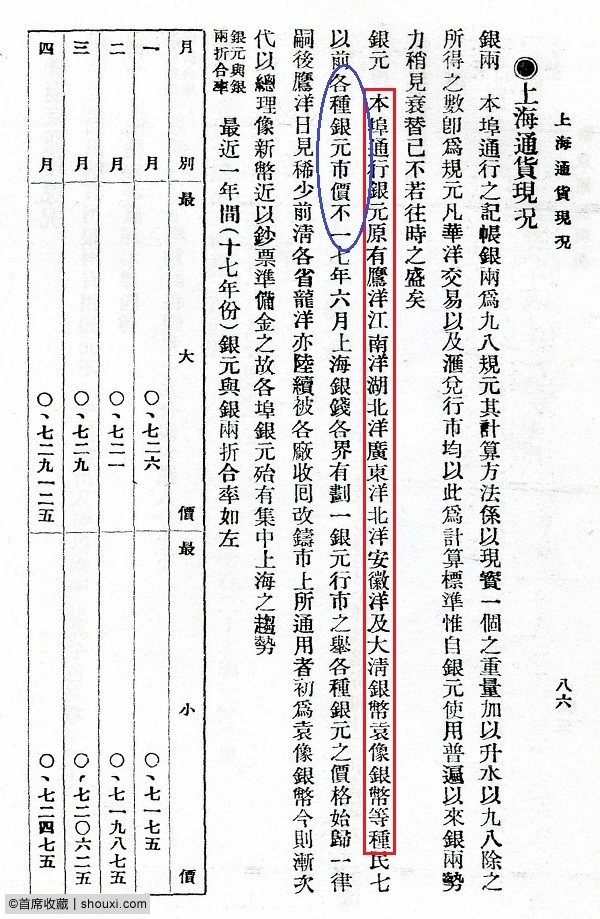 上海通貨現況
八六
●上海通貨現况
銀兩　本埠通行之記帳銀兩爲九八規元其計算方法係以現寳一個之重量加以升水以九八除之
所得之數卽爲規元凡華洋交易以及滙兌行市均以此爲計算標準惟自銀元使用普遍以來銀兩勢
力稍見衰替已不若往時之盛矣
銀元　本埠通行銀元原有鷹洋江南洋湖北洋廣東洋北洋安徽洋及大淸銀幣袁像銀幣等種民七
以前各種銀元市價不一七年六月上海銀錢各界有劃一銀元行市之舉各種銀元之價格始歸一律
嗣後鷹洋日見稀少前淸各省龍洋亦陸續被各廠收囘改鑄市上所通用者初爲袁像銀幣今則漸次
代以總理像新幣近以鈔票準備金之故各埠銀元殆有集中上海之趨勢
銀元與銀
兩折合率
最近一年間(十七年份)銀元與銀兩折合率如左
月別　最大價　最小價
一月　〇、七二六　〇、七一七五
二月　〇、七二一　〇、七一九八七五
三月　〇、七二九　〇、七二〇六二五
四月　〇、七二九一二五　〇、七二四七五
©首席收藏 | shouxi.com